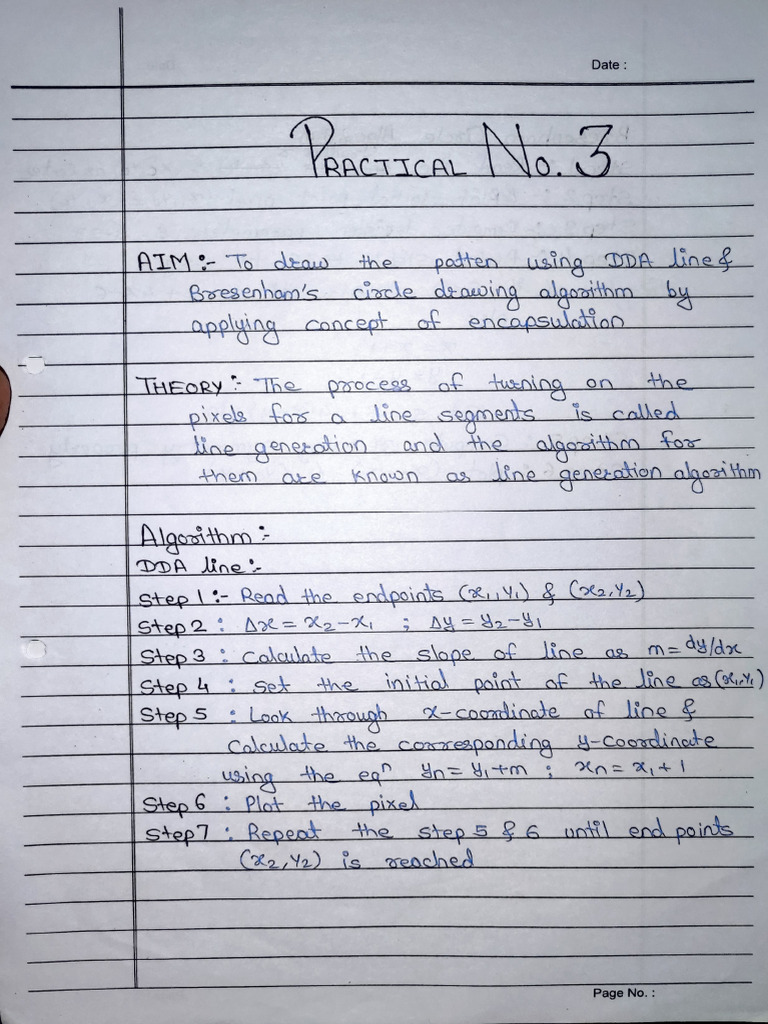 Date :
PRACTICAL No. 3
AIM :- To draw the patten using DDA line &
Bresenham's circle drawing algorithm by
applying concept of encapsulation
THEORY :- The process of turning on the
pixels for a line segments is called
line generation and the algorithm for
them are known as line generation algorithm
Algorithm :-
DDA line :-
Step 1 :- Read the endpoints (x₁,y₁) & (x₂,y₂)
Step 2 : Δx = x₂-x₁ ; Δy = y₂-y₁
Step 3 : Calculate the slope of line as m = dy/dx
Step 4 : set the initial point of the line as (x₁,y₁)
Step 5 : Look through x-coordinate of line &
Calculate the corresponding y-coordinate
using the eqⁿ yn = y₁+m ; xn = x₁+1
Step 6 : Plot the pixel
Step 7 : Repeat the step 5 & 6 until end points
(x₂,y₂) is reached
Page No. :